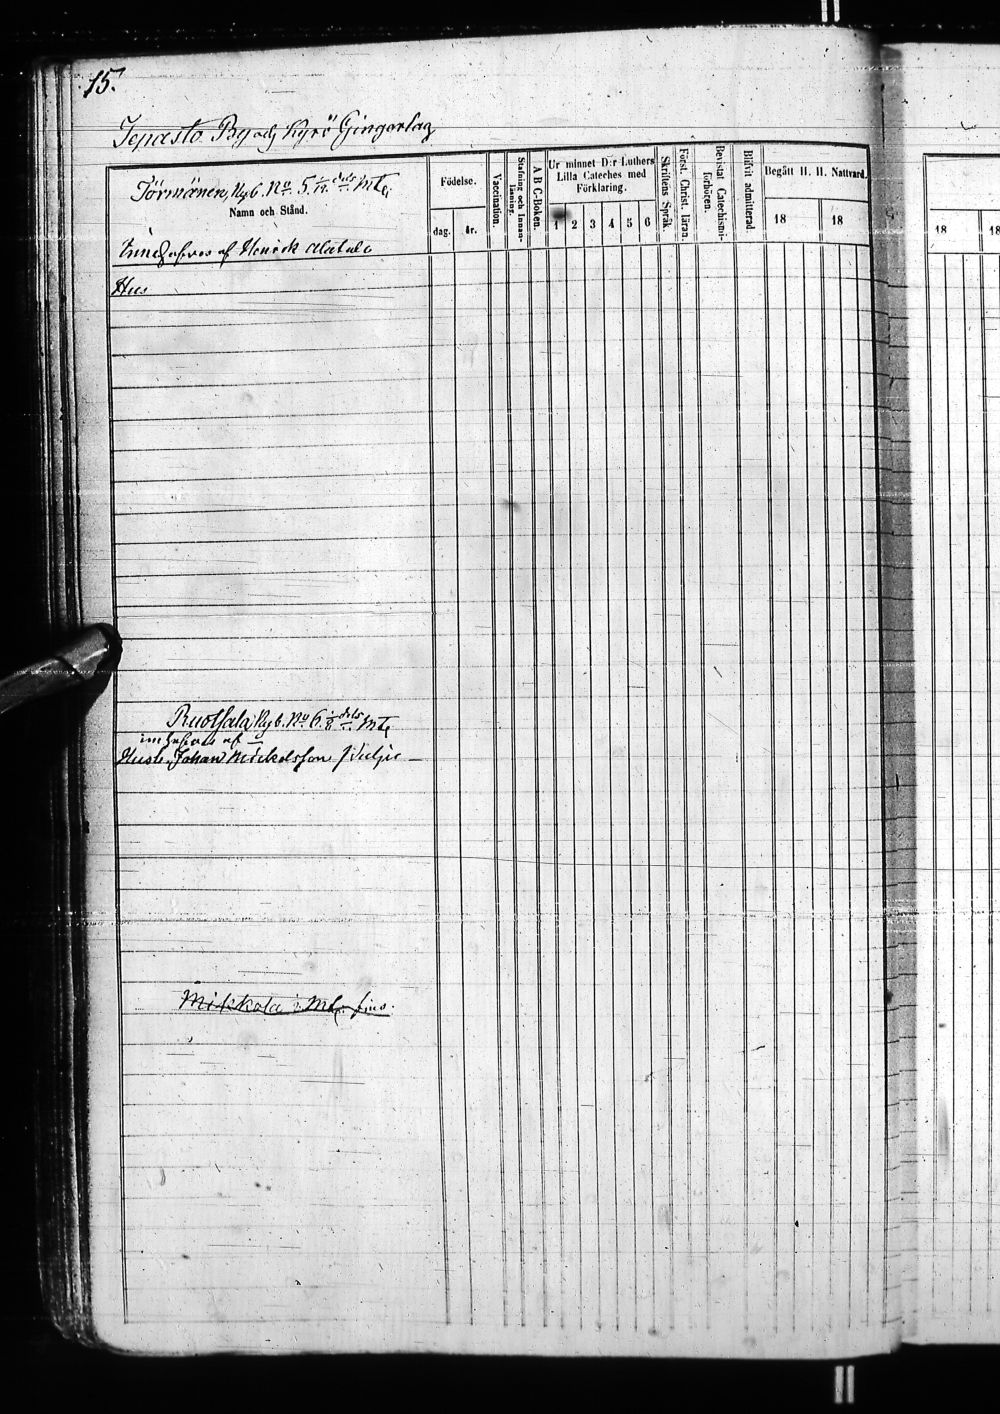 15.
Jepasto By och Kyrö Gingerlag
Törmänen, Nyb. No 5. 1/12 dels Mtl
Namn och Stånd.
Födelse.
dag. år.
Vaccination.
Stafning och Innanläsning.
A B C-Boken.
Ur minnet D:r Luthers
Lilla Cateches med
Förklaring.
1 2 3 4 5 6
Skriftens Språk.
Först. Christ. läran.
Bevistat Catechismi-
förhören.
Blifvit admitterad.
Begått H. H. Nattvard.
18 18
18 18
Innehafves af Henrik Alatalo
Hus
Ruotsala Nyb. No 6. 1/8 dels Mtl
innehafves af
Husb. Johan Mickelsson
Mikkola